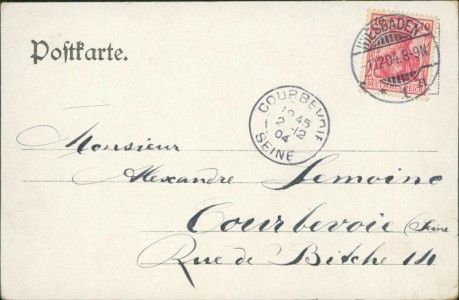 Postkarte.
WIESBADEN
1.12.04.8-9N
COURBEVOIE
10 45
2 -12
04
SEINE
Monsieur
Alexandre Lemoine
Courbevoie (Seine
Rue de Bitche 14